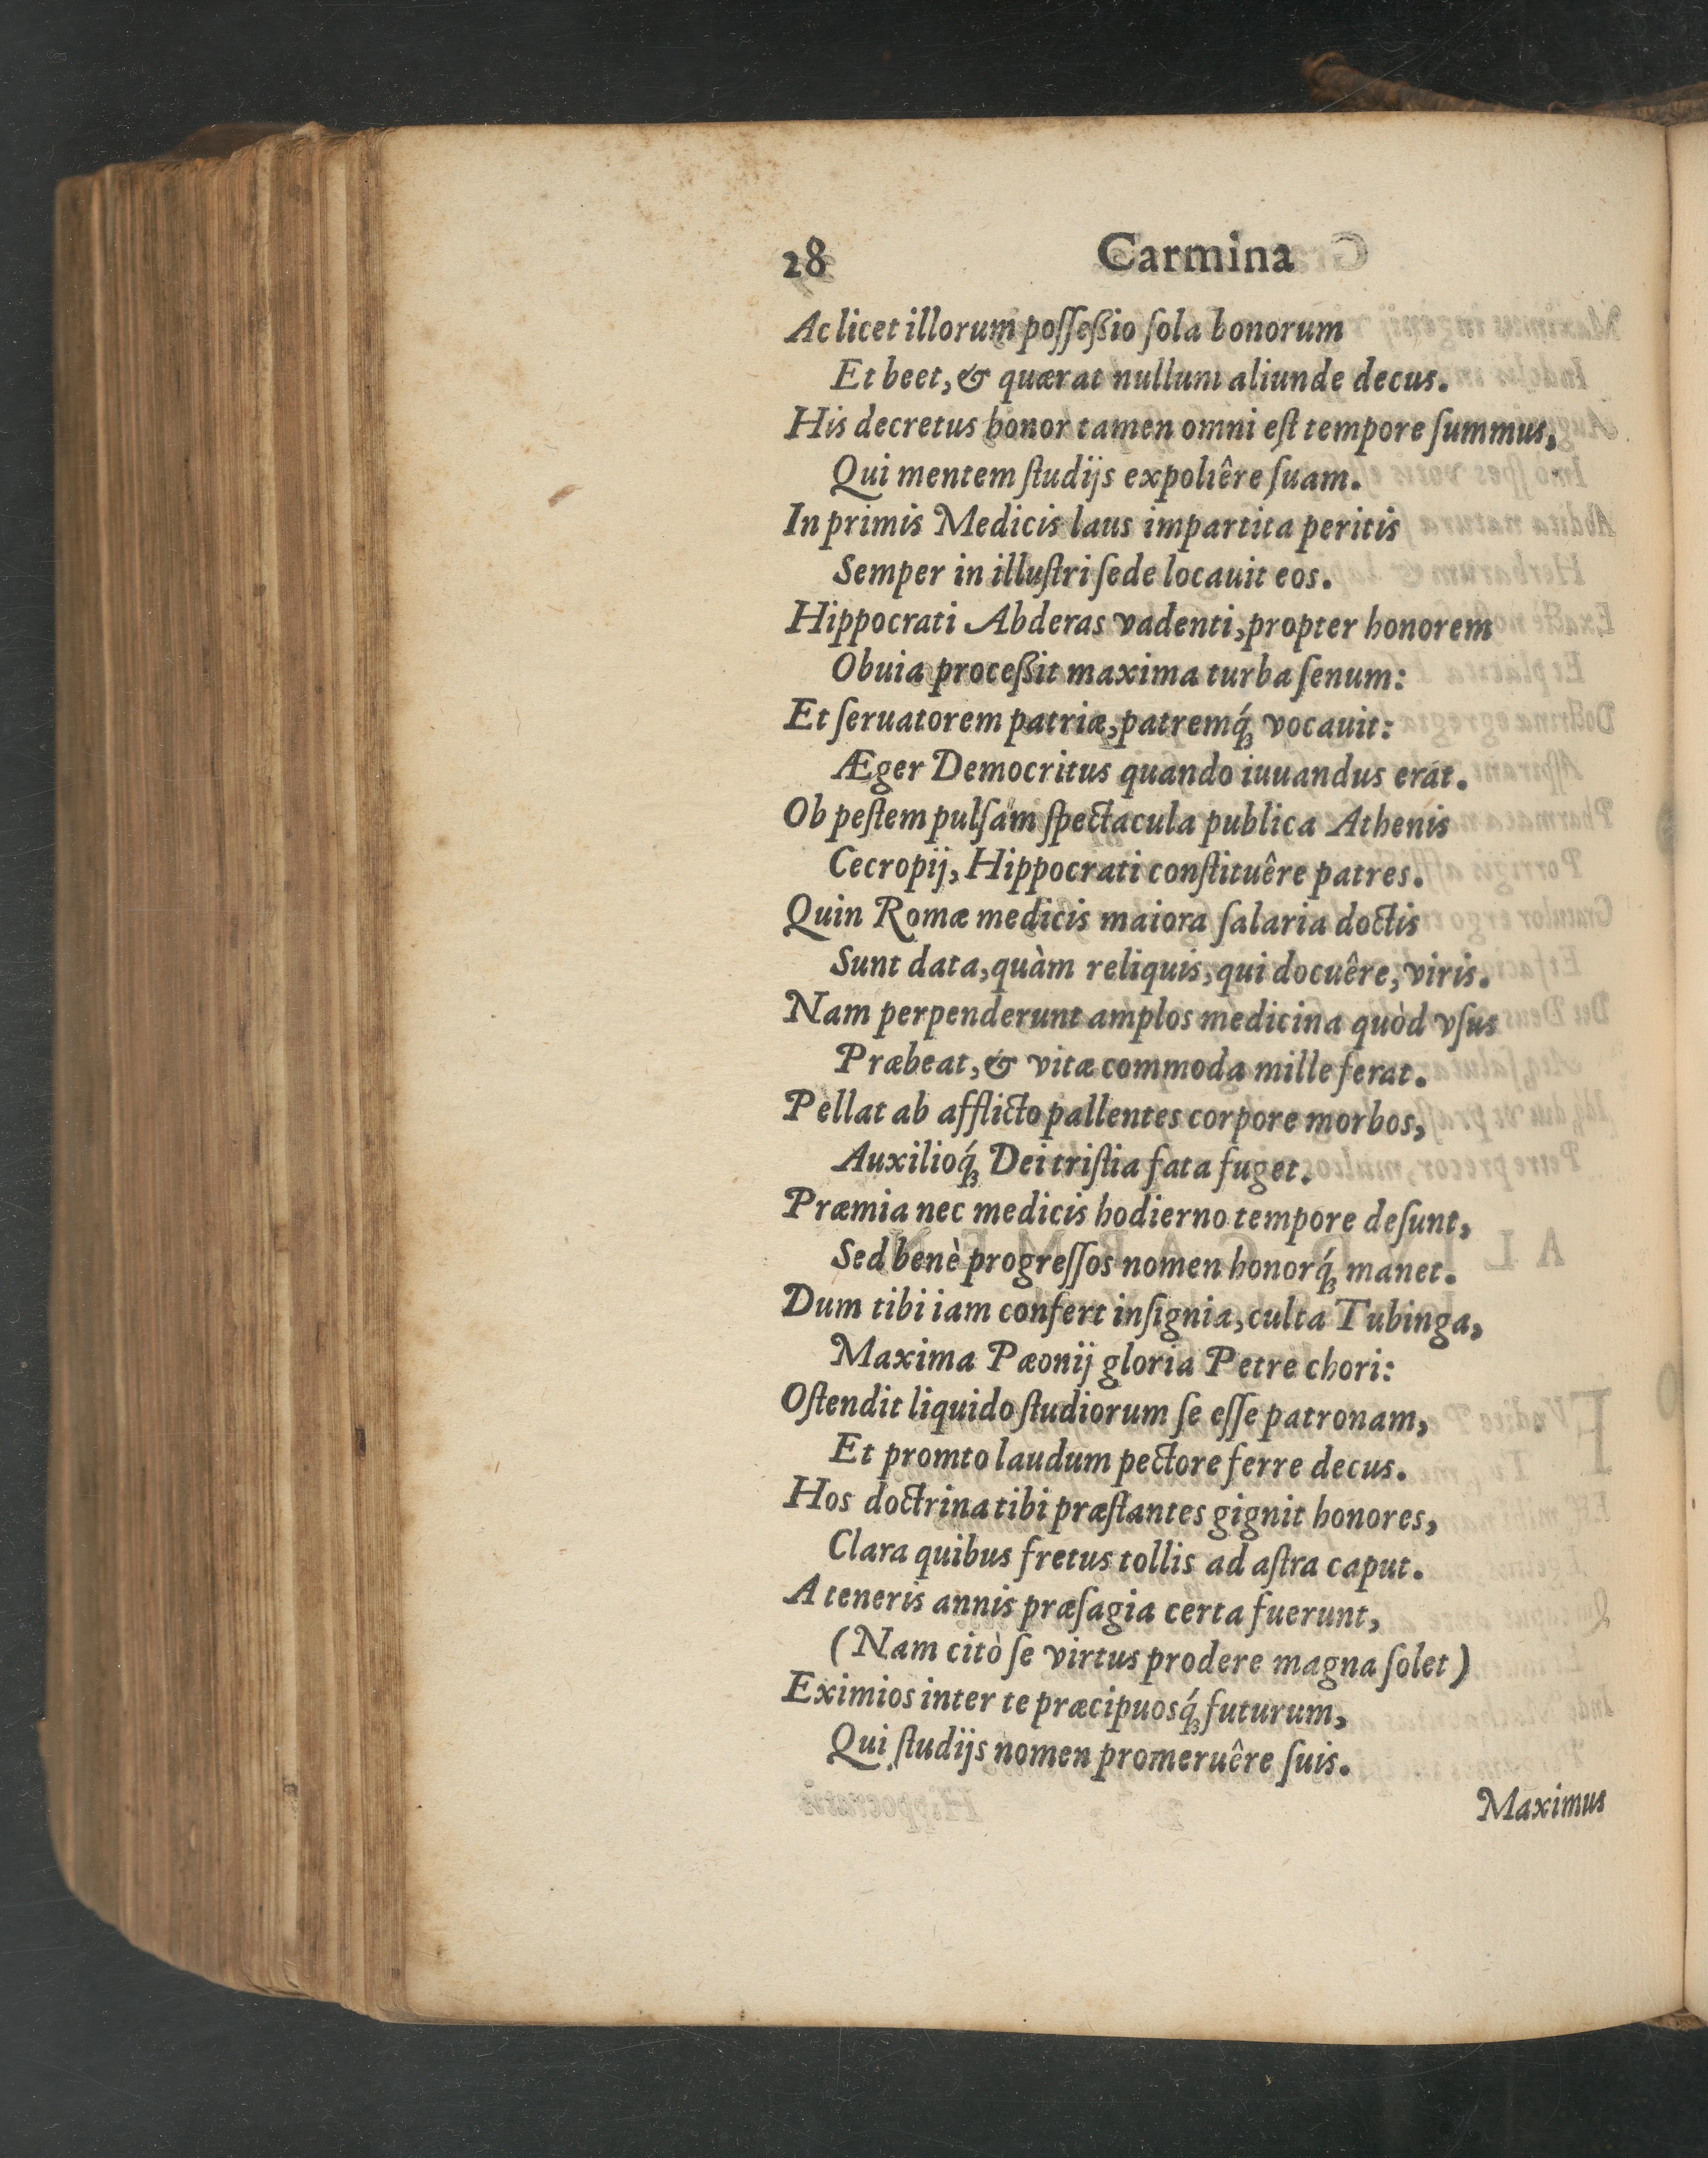 28 Carmina
Ac licet illorum poſſeßio ſola bonorum
Et beet, & quærat nullum aliunde decus.
His decretus honor tamen omni eſt tempore ſummus,
Qui mentem ſtudijs expoliêre ſuam.
In primis Medicis laus impartita peritis
Semper in illuſtri ſede locauit eos.
Hippocrati Abderas vadenti, propter honorem
Obuia proceßit maxima turba ſenum:
Et ſeruatorem patriæ, patremq́ꝫ vocauit:
Æger Democritus quando iuuandus erat.
Ob peſtem pulſam ſpectacula publica Athenis
Cecropij, Hippocrati conſtituêre patres.
Quin Romæ medicis maiora ſalaria doctis
Sunt data, quàm reliquis, qui docuêre, viris.
Nam perpenderunt amplos medicina quòd vſus
Præbeat, & vitæ commoda mille ferat.
Pellat ab afflicto pallentes corpore morbos,
Auxilioq́ꝫ Dei triſtia fata fuget.
Præmia nec medicis hodierno tempore deſunt,
Sed benè progreſſos nomen honorq́ꝫ manet.
Dum tibi iam confert inſignia, culta Tubinga,
Maxima Pæonij gloria Petre chori:
Oſtendit liquido ſtudiorum ſe eſſe patronam,
Et promto laudum pectore ferre decus.
Hos doctrina tibi præſtantes gignit honores,
Clara quibus fretus tollis ad aſtra caput.
A teneris annis præſagia certa fuerunt,
(Nam citò ſe virtus prodere magna ſolet)
Eximios inter te præcipuosq́ꝫ futurum,
Qui ſtudijs nomen promeruêre ſuis.
Maximus